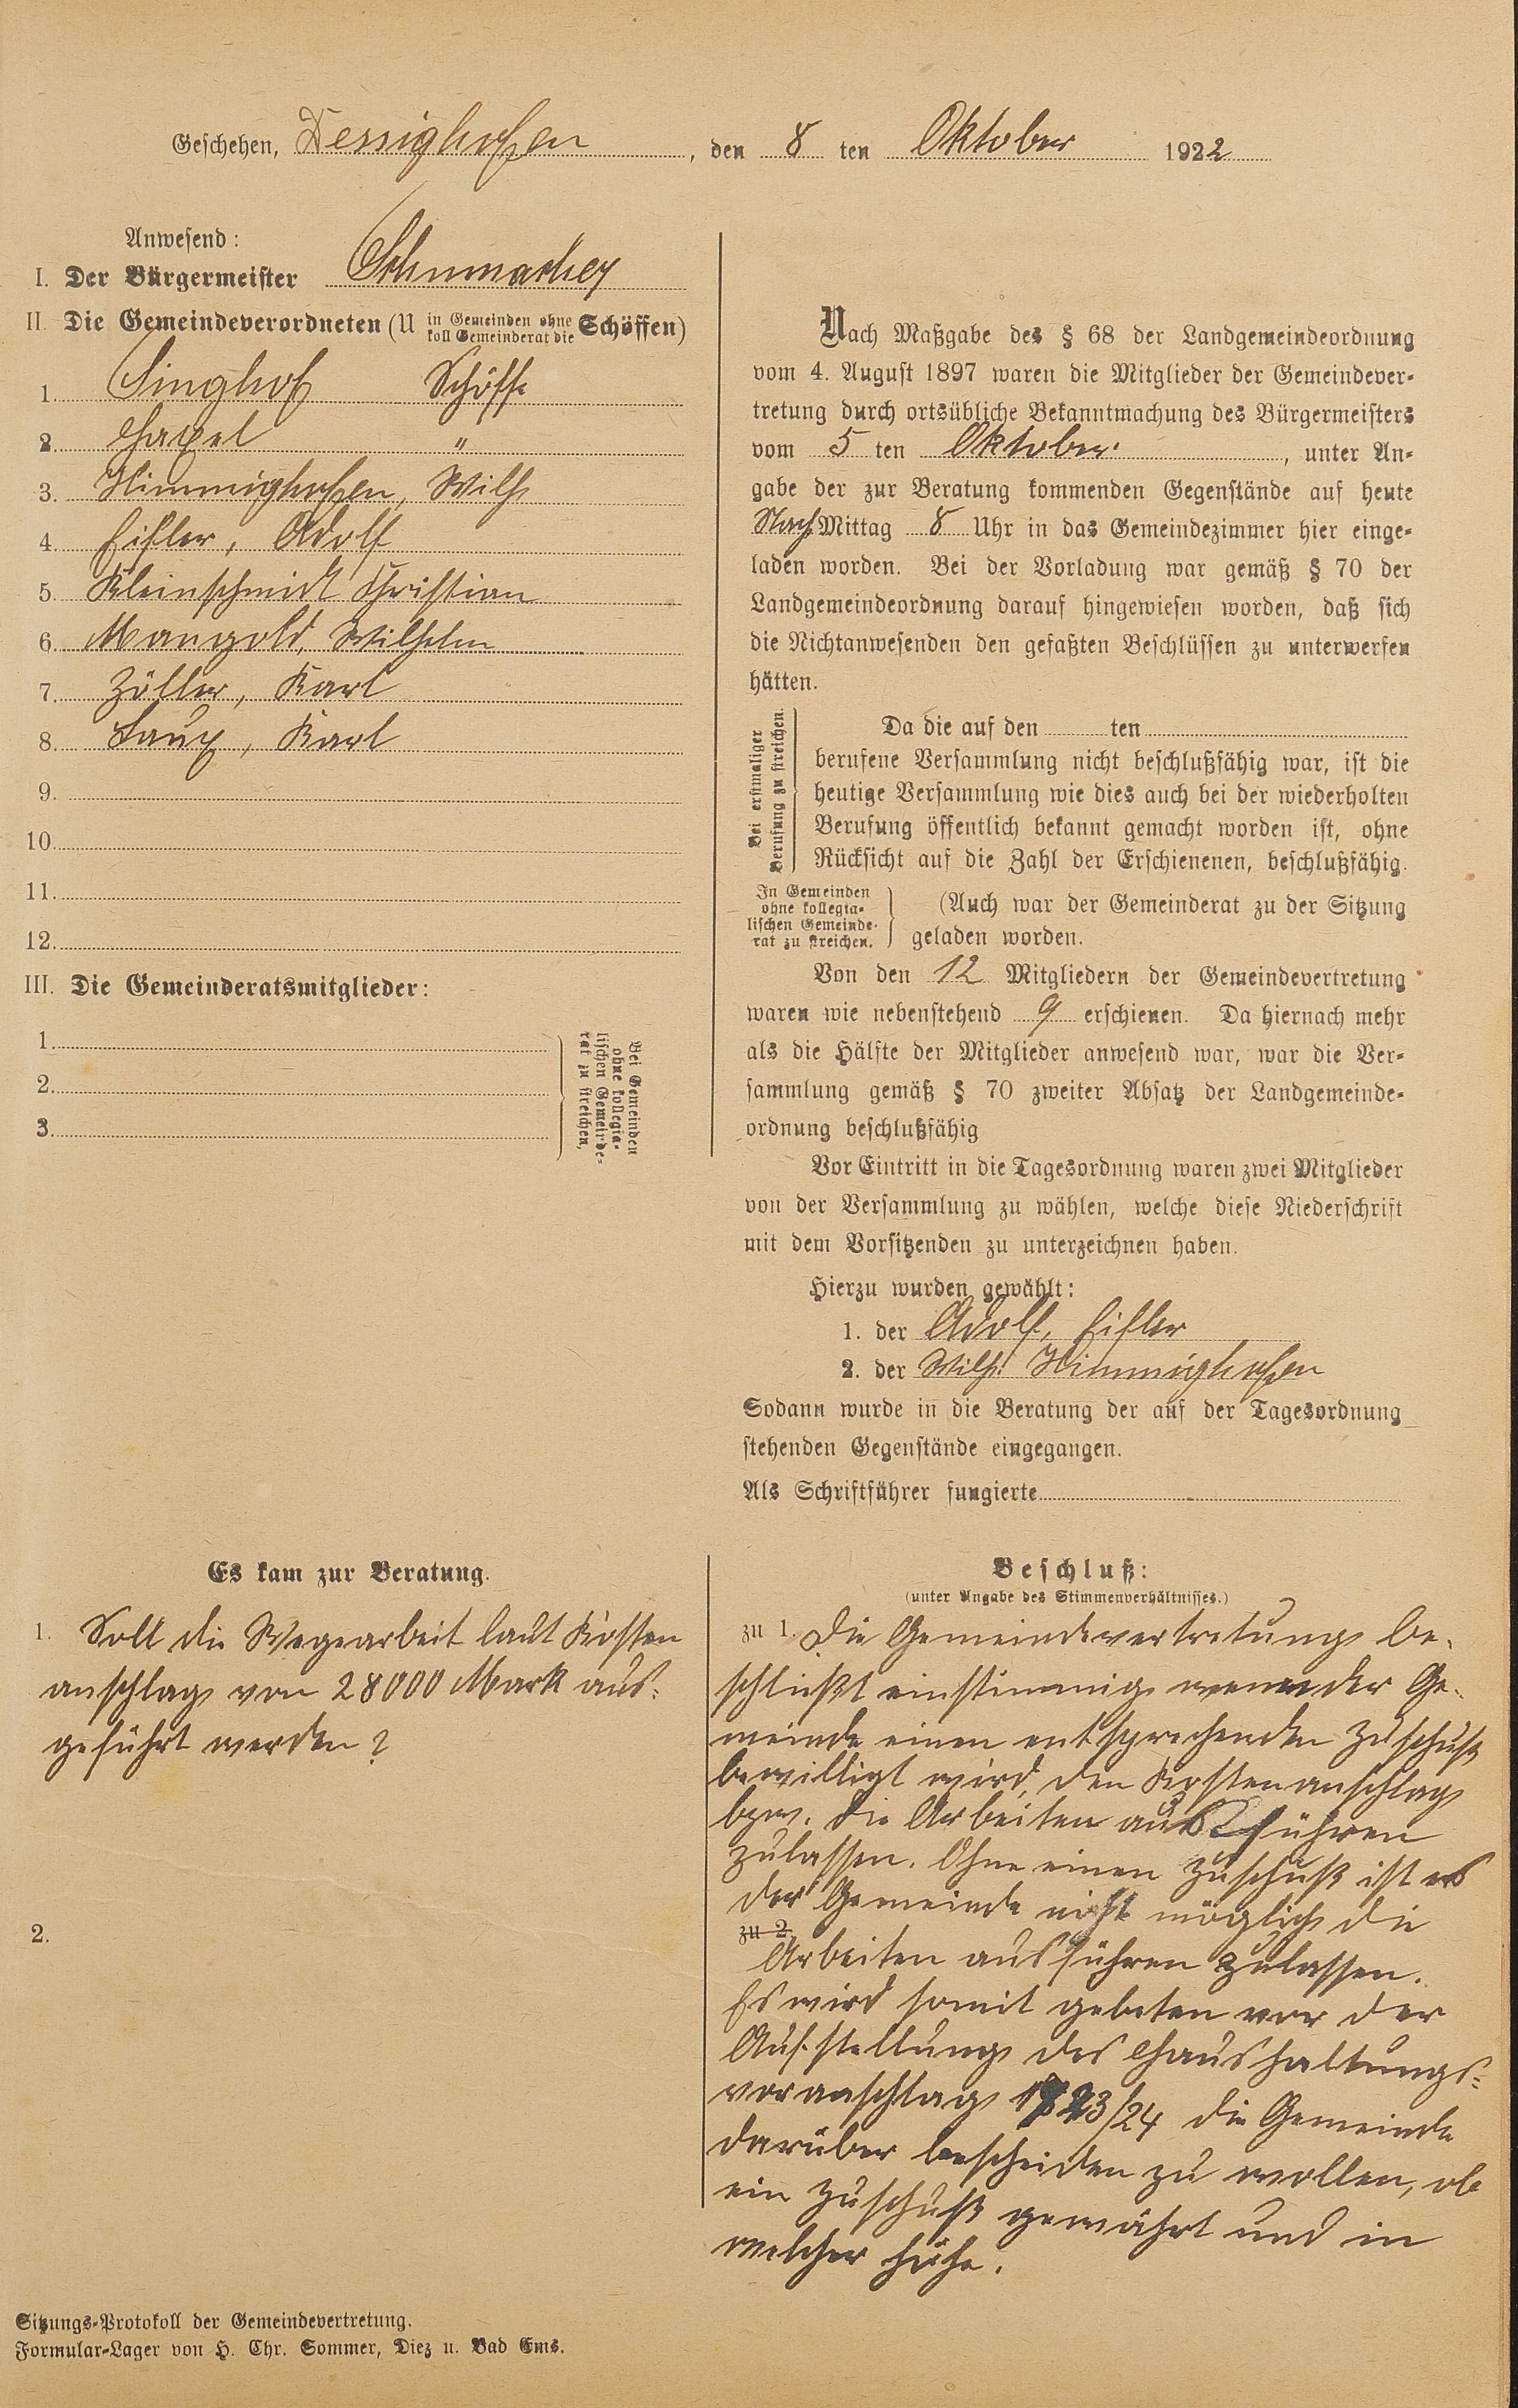 Geschehen, Dessighofen, den 8 ten Oktober 1922
Anwesend:
I. Der Bürgermeister Schumacher
II. Die Gemeindeverordneten (U in Gemeinden ohne koll Gemeinderat die Schöffen)
1. Singhof Schöffe
2. Hagel "
3. Himmighofen, Wilh
4. Eisler, Adolf
5. Kleinschmidt Christian
6. Mangold, Wilhelm
7. Zöller, Karl
8. Laux, Karl
9.
10.
11.
12.
III. Die Gemeinderatsmitglieder:
1.
2.
3.
Bei Gemeinden
ohne kollegia-
lischen Gemeinde-
rat zu streichen.
Nach Maßgabe des § 68 der Landgemeindeordnung
vom 4. August 1897 waren die Mitglieder der Gemeindever-
tretung durch ortsübliche Bekanntmachung des Bürgermeisters
vom 5 ten Oktober, unter An-
gabe der zur Beratung kommenden Gegenstände auf heute
Nach Mittag 8 Uhr in das Gemeindezimmer hier einge-
laden worden. Bei der Vorladung war gemäß § 70 der
Landgemeindeordnung darauf hingewiesen worden, daß sich
die Nichtanwesenden den gefaßten Beschlüssen zu unterwerfen
hätten.
Bei erstmaliger
Berufung zu streichen.
Da die auf den ten
berufene Versammlung nicht beschlußfähig war, ist die
heutige Versammlung wie dies auch bei der wiederholten
Berufung öffentlich bekannt gemacht worden ist, ohne
Rücksicht auf die Zahl der Erschienenen, beschlußfähig.
In Gemeinden
ohne kollegia-
lischen Gemeinde-
rat zu streichen.
(Auch war der Gemeinderat zu der Sitzung
geladen worden.
Von den 12 Mitgliedern der Gemeindevertretung
waren wie nebenstehend 9 erschienen. Da hiernach mehr
als die Hälfte der Mitglieder anwesend war, war die Ver-
sammlung gemäß § 70 zweiter Absatz der Landgemeinde-
ordnung beschlußfähig
Vor Eintritt in die Tagesordnung waren zwei Mitglieder
von der Versammlung zu wählen, welche diese Niederschrift
mit dem Vorsitzenden zu unterzeichnen haben.
Hierzu wurden gewählt:
1. der Adolf, Eisler
2. der Wilh. Himmighofen
Sodann wurde in die Beratung der auf der Tagesordnung
stehenden Gegenstände eingegangen.
Als Schriftführer fungierte
Es kam zur Beratung.
1. Soll die Wegearbeit laut Kosten
anschlag von 28000 Mark aus:
geführt werden?
2.
Beschluß:
(unter Angabe des Stimmenverhältnisses.)
zu 1. Die Gemeindevertretung be-
schließt einstimmig wenn der Ge-
meinde einen entsprechenden Zuschuß
bewilligt wird, den Kostenanschlag
bzw. die Arbeiten ausführen
zulassen. Ohne einen Zuschuß ist es
der Gemeinde nicht möglich die
zu 2.
Arbeiten ausführen zulassen.
Es wird somit gebeten vor der
Aufstellung des Haushaltungs-
voranschlag 1923/24 die Gemeinde
darüber bescheiden zu wollen, ob
ein Zuschuß gewährt und in
welcher Höhe.
Sitzungs-Protokoll der Gemeindevertretung.
Formular-Lager von H. Chr. Sommer, Diez u. Bad Ems.